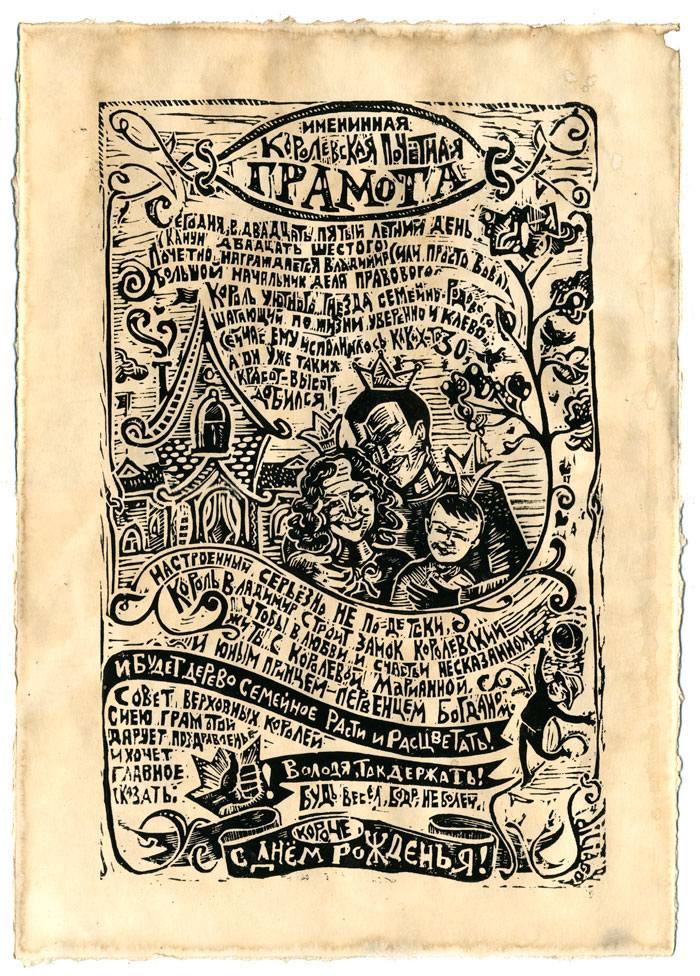 ИМЕНИННАЯ
КОРОЛЕВСКАЯ ПОЧЕТНАЯ
ГРАМОТА
СЕГОДНЯ, В ДВАДЦАТЬ ПЯТЫЙ ЛЕТНИЙ ДЕНЬ
(КАНУН ДВАДЦАТЬ ШЕСТОГО)
ПОЧЕТНО НАГРАЖДАЕТСЯ ВЛАДИМИР (ИЛИ ПРОСТО ВОВА)
БОЛЬШОЙ НАЧАЛЬНИК ДЕЛА ПРАВОВОГО
КОРОЛЬ УЮТНОГО ГНЕЗДА СЕМЕЙНО-РОДОВОГО
ШАГАЮЩИЙ ПО ЖИЗНИ УВЕРЕННО И КЛЕВО
СЕЙЧАС ЕМУ ИСПОЛНИЛОСЬ КАКИХ-ТО 30
А ОН УЖЕ ТАКИХ
КРАСОТ-ВЫСОТ
ДОБИЛСЯ!
НАСТРОЕННЫЙ СЕРЬЕЗНО НЕ ПО-ДЕТСКИ,
КОРОЛЬ ВЛАДИМИР СТРОИТ ЗАМОК КОРОЛЕВСКИЙ
ЧТОБЫ В ЛЮБВИ И СЧАСТЬИ НЕСКАЗАННОМ
ЖИТЬ С КОРОЛЕВОЙ МАРИАННОЙ,
И ЮНЫМ ПРИНЦЕМ-ПЕРВЕНЦЕМ БОГДАНОМ.
И БУДЕТ ДЕРЕВО СЕМЕЙНОЕ РАСТИ И РАСЦВЕТАТЬ!
СОВЕТ ВЕРХОВНЫХ КОРОЛЕЙ
СИЕЮ ГРАМОТОЙ
ДАРУЕТ ПОЗДРАВЛЕНЬЕ
И ХОЧЕТ
ГЛАВНОЕ
СКАЗАТЬ:
ВОЛОДЯ, ТАК ДЕРЖАТЬ!
БУДЬ ВЕСЕЛ, БОДР, НЕ БОЛЕЙ,
КОРОЧЕ
С ДНЁМ РОЖДЕНЬЯ!